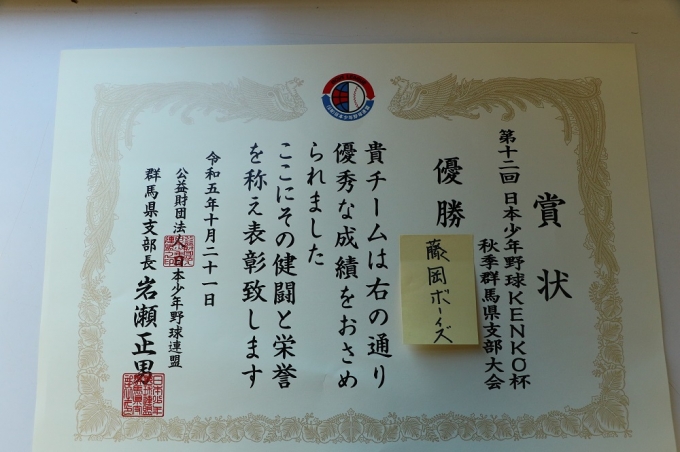 賞状
第十二回 日本少年野球KENKO杯
秋季群馬県支部大会
優勝
藤岡ボーイズ
貴チームは右の通り
優秀な成績をおさめ
られました
ここにその健闘と栄誉
を称え表彰致します
令和五年十月二十一日
公益財団法人日本少年野球連盟
群馬県支部長 岩瀬正男